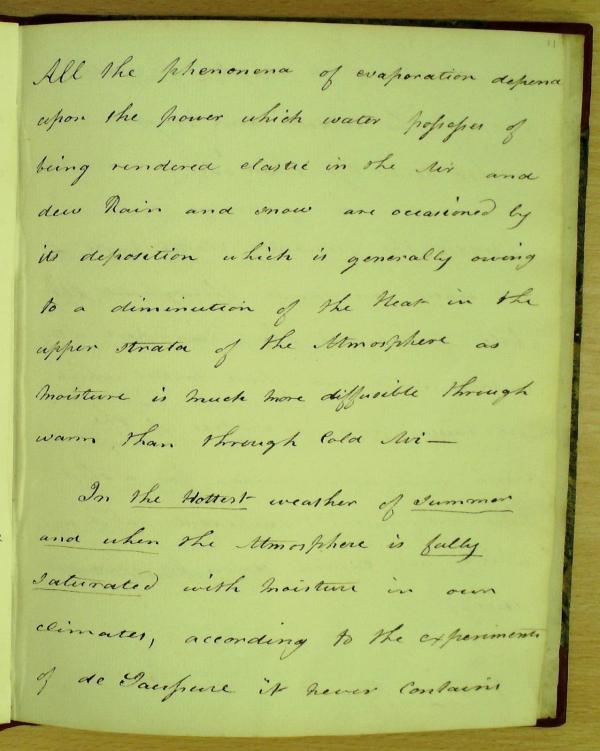 11
All the phenonena of evaporation depend
upon the power which water possesses of
being rendered elastic in the Air and
dew Rain and snow are occasioned by
its deposition which is generally owing
to a diminution of the Heat in the
upper strata of the Atmosphere as
moisture is much more diffusible through
warm than through Cold Air —
In the Hottest weather of Summer
and when the Atmosphere is fully
saturated with moisture in our
climates, according to the experiments
of de Saussure it never Contains